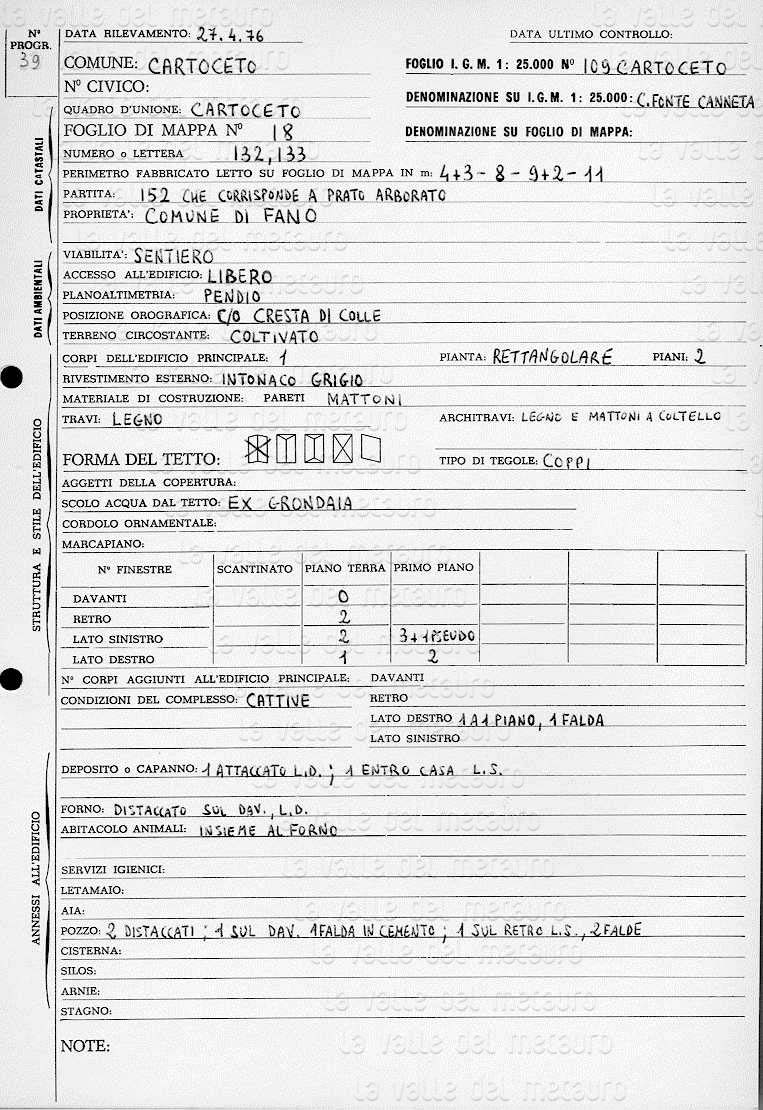 N° PROGR. 39
DATA RILEVAMENTO: 27.4.76 DATA ULTIMO CONTROLLO:
COMUNE: CARTOCETO FOGLIO I. G. M. 1: 25.000 N° 109 CARTOCETO
N° CIVICO:
QUADRO D'UNIONE: CARTOCETO DENOMINAZIONE SU I. G. M. 1: 25.000: C. FONTE CANNETA
FOGLIO DI MAPPA N° 18 DENOMINAZIONE SU FOGLIO DI MAPPA:
NUMERO o LETTERA 132, 133
PERIMETRO FABBRICATO LETTO SU FOGLIO DI MAPPA IN m: 4+3-8-9+2-11
PARTITA: 152 CHE CORRISPONDE A PRATO ARBORATO
PROPRIETA': COMUNE DI FANO
DATI CATASTALI
VIABILITA': SENTIERO
ACCESSO ALL'EDIFICIO: LIBERO
PLANOALTIMETRIA: PENDIO
POSIZIONE OROGRAFICA: C/O CRESTA DI COLLE
TERRENO CIRCOSTANTE: COLTIVATO
DATI AMBIENTALI
CORPI DELL'EDIFICIO PRINCIPALE: 1 PIANTA: RETTANGOLARE PIANI: 2
RIVESTIMENTO ESTERNO: INTONACO GRIGIO
MATERIALE DI COSTRUZIONE: PARETI MATTONI
TRAVI: LEGNO ARCHITRAVI: LEGNO E MATTONI A COLTELLO
FORMA DEL TETTO: TIPO DI TEGOLE: COPPI
AGGETTI DELLA COPERTURA:
SCOLO ACQUA DAL TETTO: EX GRONDAIA
CORDOLO ORNAMENTALE:
MARCAPIANO:
N° FINESTRE SCANTINATO PIANO TERRA PRIMO PIANO
DAVANTI 0
RETRO 2
LATO SINISTRO 2 3+1 PSEUDO
LATO DESTRO 1 2
STRUTTURA E STILE DELL'EDIFICIO
N° CORPI AGGIUNTI ALL'EDIFICIO PRINCIPALE: DAVANTI
CONDIZIONI DEL COMPLESSO: CATTIVE RETRO
LATO DESTRO 1 A 1 PIANO, 1 FALDA
LATO SINISTRO
DEPOSITO o CAPANNO: 1 ATTACCATO L.D.; 1 ENTRO CASA L.S.
FORNO: DISTACCATO SUL DAV., L.D.
ABITACOLO ANIMALI: INSIEME AL FORNO
SERVIZI IGIENICI:
LETAMAIO:
AIA:
POZZO: 2 DISTACCATI; 1 SUL DAV. 1 FALDA IN CEMENTO; 1 SUL RETRO L.S., 2 FALDE
CISTERNA:
SILOS:
ARNIE:
STAGNO:
ANNESSI ALL'EDIFICIO
NOTE:
la valle del metauro